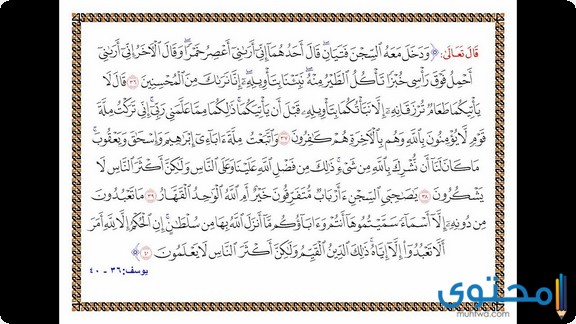 قَالَ تَعَالَى: ﴿ وَدَخَلَ مَعَهُ ٱلسِّجْنَ فَتَيَانِ ۖ قَالَ أَحَدُهُمَآ إِنِّىٓ أَرَىٰنِىٓ أَعْصِرُ خَمْرًا ۖ وَقَالَ ٱلْءَاخَرُ إِنِّىٓ أَرَىٰنِىٓ
أَحْمِلُ فَوْقَ رَأْسِى خُبْزًا تَأْكُلُ ٱلطَّيْرُ مِنْهُ ۖ نَبِّئْنَا بِتَأْوِيلِهِۦٓ ۖ إِنَّا نَرَىٰكَ مِنَ ٱلْمُحْسِنِينَ ٣٦ قَالَ لَا
يَأْتِيكُمَا طَعَامٌ تُرْزَقَانِهِۦٓ إِلَّا نَبَّأْتُكُمَا بِتَأْوِيلِهِۦ قَبْلَ أَن يَأْتِيَكُمَا ۚ ذَٰلِكُمَا مِمَّا عَلَّمَنِى رَبِّىٓ ۚ إِنِّى تَرَكْتُ مِلَّةَ
قَوْمٍ لَّا يُؤْمِنُونَ بِٱللَّهِ وَهُم بِٱلْءَاخِرَةِ هُمْ كَٰفِرُونَ ٣٧ وَٱتَّبَعْتُ مِلَّةَ ءَابَآءِىٓ إِبْرَٰهِيمَ وَإِسْحَٰقَ وَيَعْقُوبَ ۚ
مَا كَانَ لَنَآ أَن نُّشْرِكَ بِٱللَّهِ مِن شَىْءٍ ۚ ذَٰلِكَ مِن فَضْلِ ٱللَّهِ عَلَيْنَا وَعَلَى ٱلنَّاسِ وَلَٰكِنَّ أَكْثَرَ ٱلنَّاسِ لَا
يَشْكُرُونَ ٣٨ يَٰصَىٰحِبَىِ ٱلسِّجْنِ ءَأَرْبَابٌ مُّتَفَرِّقُونَ خَيْرٌ أَمِ ٱللَّهُ ٱلْوَٰحِدُ ٱلْقَهَّارُ ٣٩ مَا تَعْبُدُونَ
مِن دُونِهِۦٓ إِلَّآ أَسْمَآءً سَمَّيْتُمُوهَآ أَنتُمْ وَءَابَآؤُكُم مَّآ أَنزَلَ ٱللَّهُ بِهَا مِن سُلْطَٰنٍ ۚ إِنِ ٱلْحُكْمُ إِلَّا لِلَّهِ ۚ أَمَرَ
أَلَّا تَعْبُدُوٓا۟ إِلَّآ إِيَّاهُ ۚ ذَٰلِكَ ٱلدِّينُ ٱلْقَيِّمُ وَلَٰكِنَّ أَكْثَرَ ٱلنَّاسِ لَا يَعْلَمُونَ ٤٠ ﴾
يوسف: ٣٦ - ٤٠
محتوى
muhtwa.com